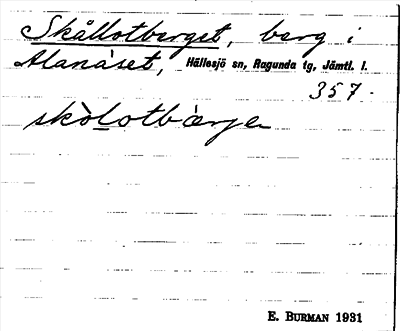 Skållotberget, berg i
Alanäset, Hällesjö sn, Ragunda tg, Jämtl. l.
357.
skòlotbærje
E. BURMAN 1931